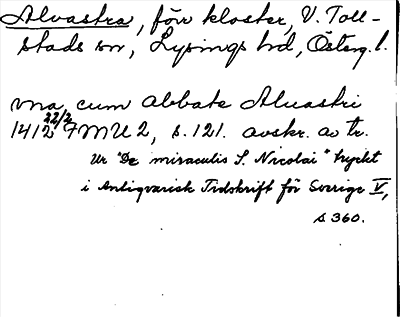 Alvastra, förv kloster, V. Toll-
stads sn, Lysings hd, Österg. l.
vna cum abbate Aluastri
1412 22/2 FMU 2, s. 121. avskr. av tr.
Ur "De miraculis S. Nicolai" tryckt
i Antiqvarisk Tidskrift för Sverige V,
s 360.